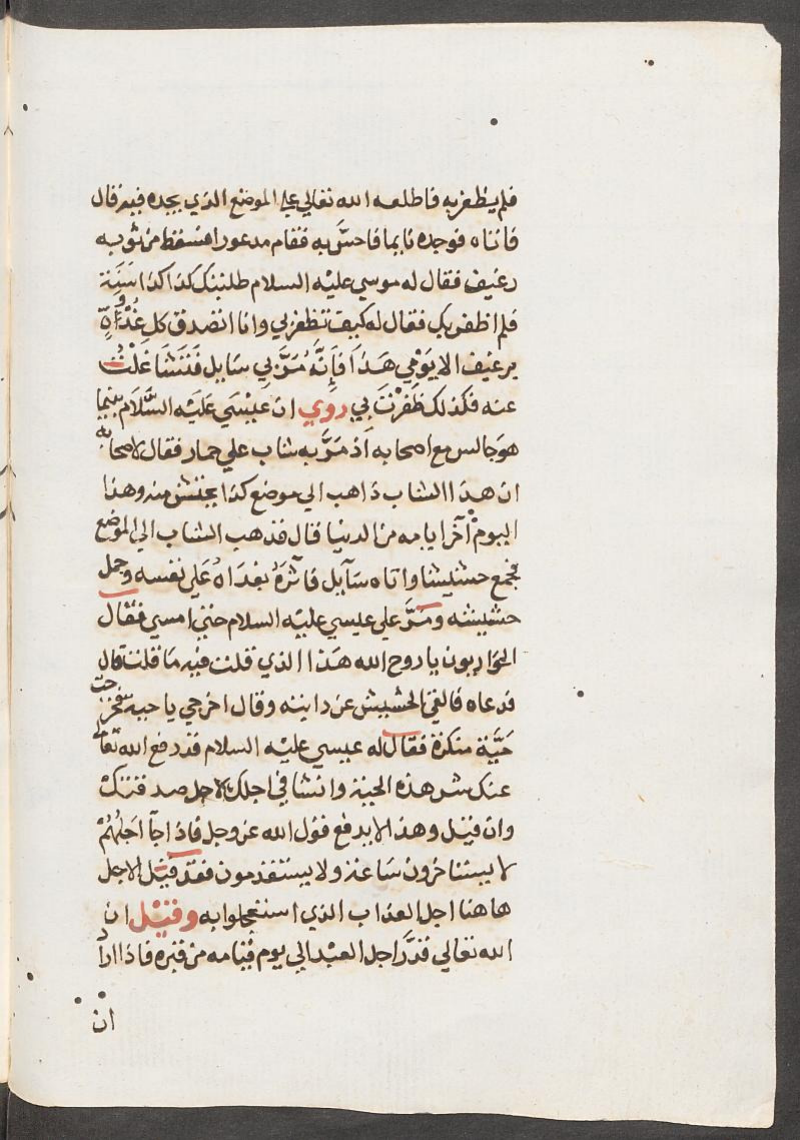 فلم يظفر به فاطلعه الله تعالي علي الموضع الذي يجده فيه قال
فاتاه فوجده نايما فاحسَّ به فقام مدعورا فسقط من ثوبه
رغيف فقال له موسي عليه السلام طلبتك كذا كذا سَنَة
فلم اظفر بك فقال له كيف تظفر بي وانا اتصدق كل غُدْوَةٍ
برغيف الا يَوْمي هَذَا فَإِنَّهُ مَرَّ بي سَايل فَتَشَاغَلْتُ
عنه فكذلك ظَفِرْتَ بي روي ان عِيْسَي عَلَيْه السَّلَام بينما
هوَ جالس مع اصحابه اذ مَرَّ به شاب علي حمار فقال لاصحابه
ان هذا الشاب ذاهب الي موضع كذا يحتش منه وهذا
اليوم آخر ايامه من الدنيا قال فذهب الشاب الي الموضع
فجمع حشيشا واتاه سآيل فآثرَهُ بغدَاهُ عَلي نفسه وحمل
حشيشه ومَرَّ علي عيسي عليه السلام حتي امسي فقال
الحَواريون يا روح الله هَذا الذي قلت فيه مَا قلت قال
فدعاه فالقي الحشيش عن دابته وقال اخرجي يا حيه فخرجت
حَيَّة منكرة فقال له عيسي عليه السلام قد رفع الله تعالي
عنك شر هذه الحية وانشا في اجلك لاجل صدقتك
وان قيل وهذا لا يدفع قول الله عز وجل فاذا جآ اجلُهُمْ
لا يستاخرون ساعة ولا يستقدمون فقد قيل الاجل
هاهنا اجل العذاب الذي استعجلوا به وقيل ان
الله تعالي قدَّر اجل العبد الي يوم قيامه من قبره فاذا اراد
ان